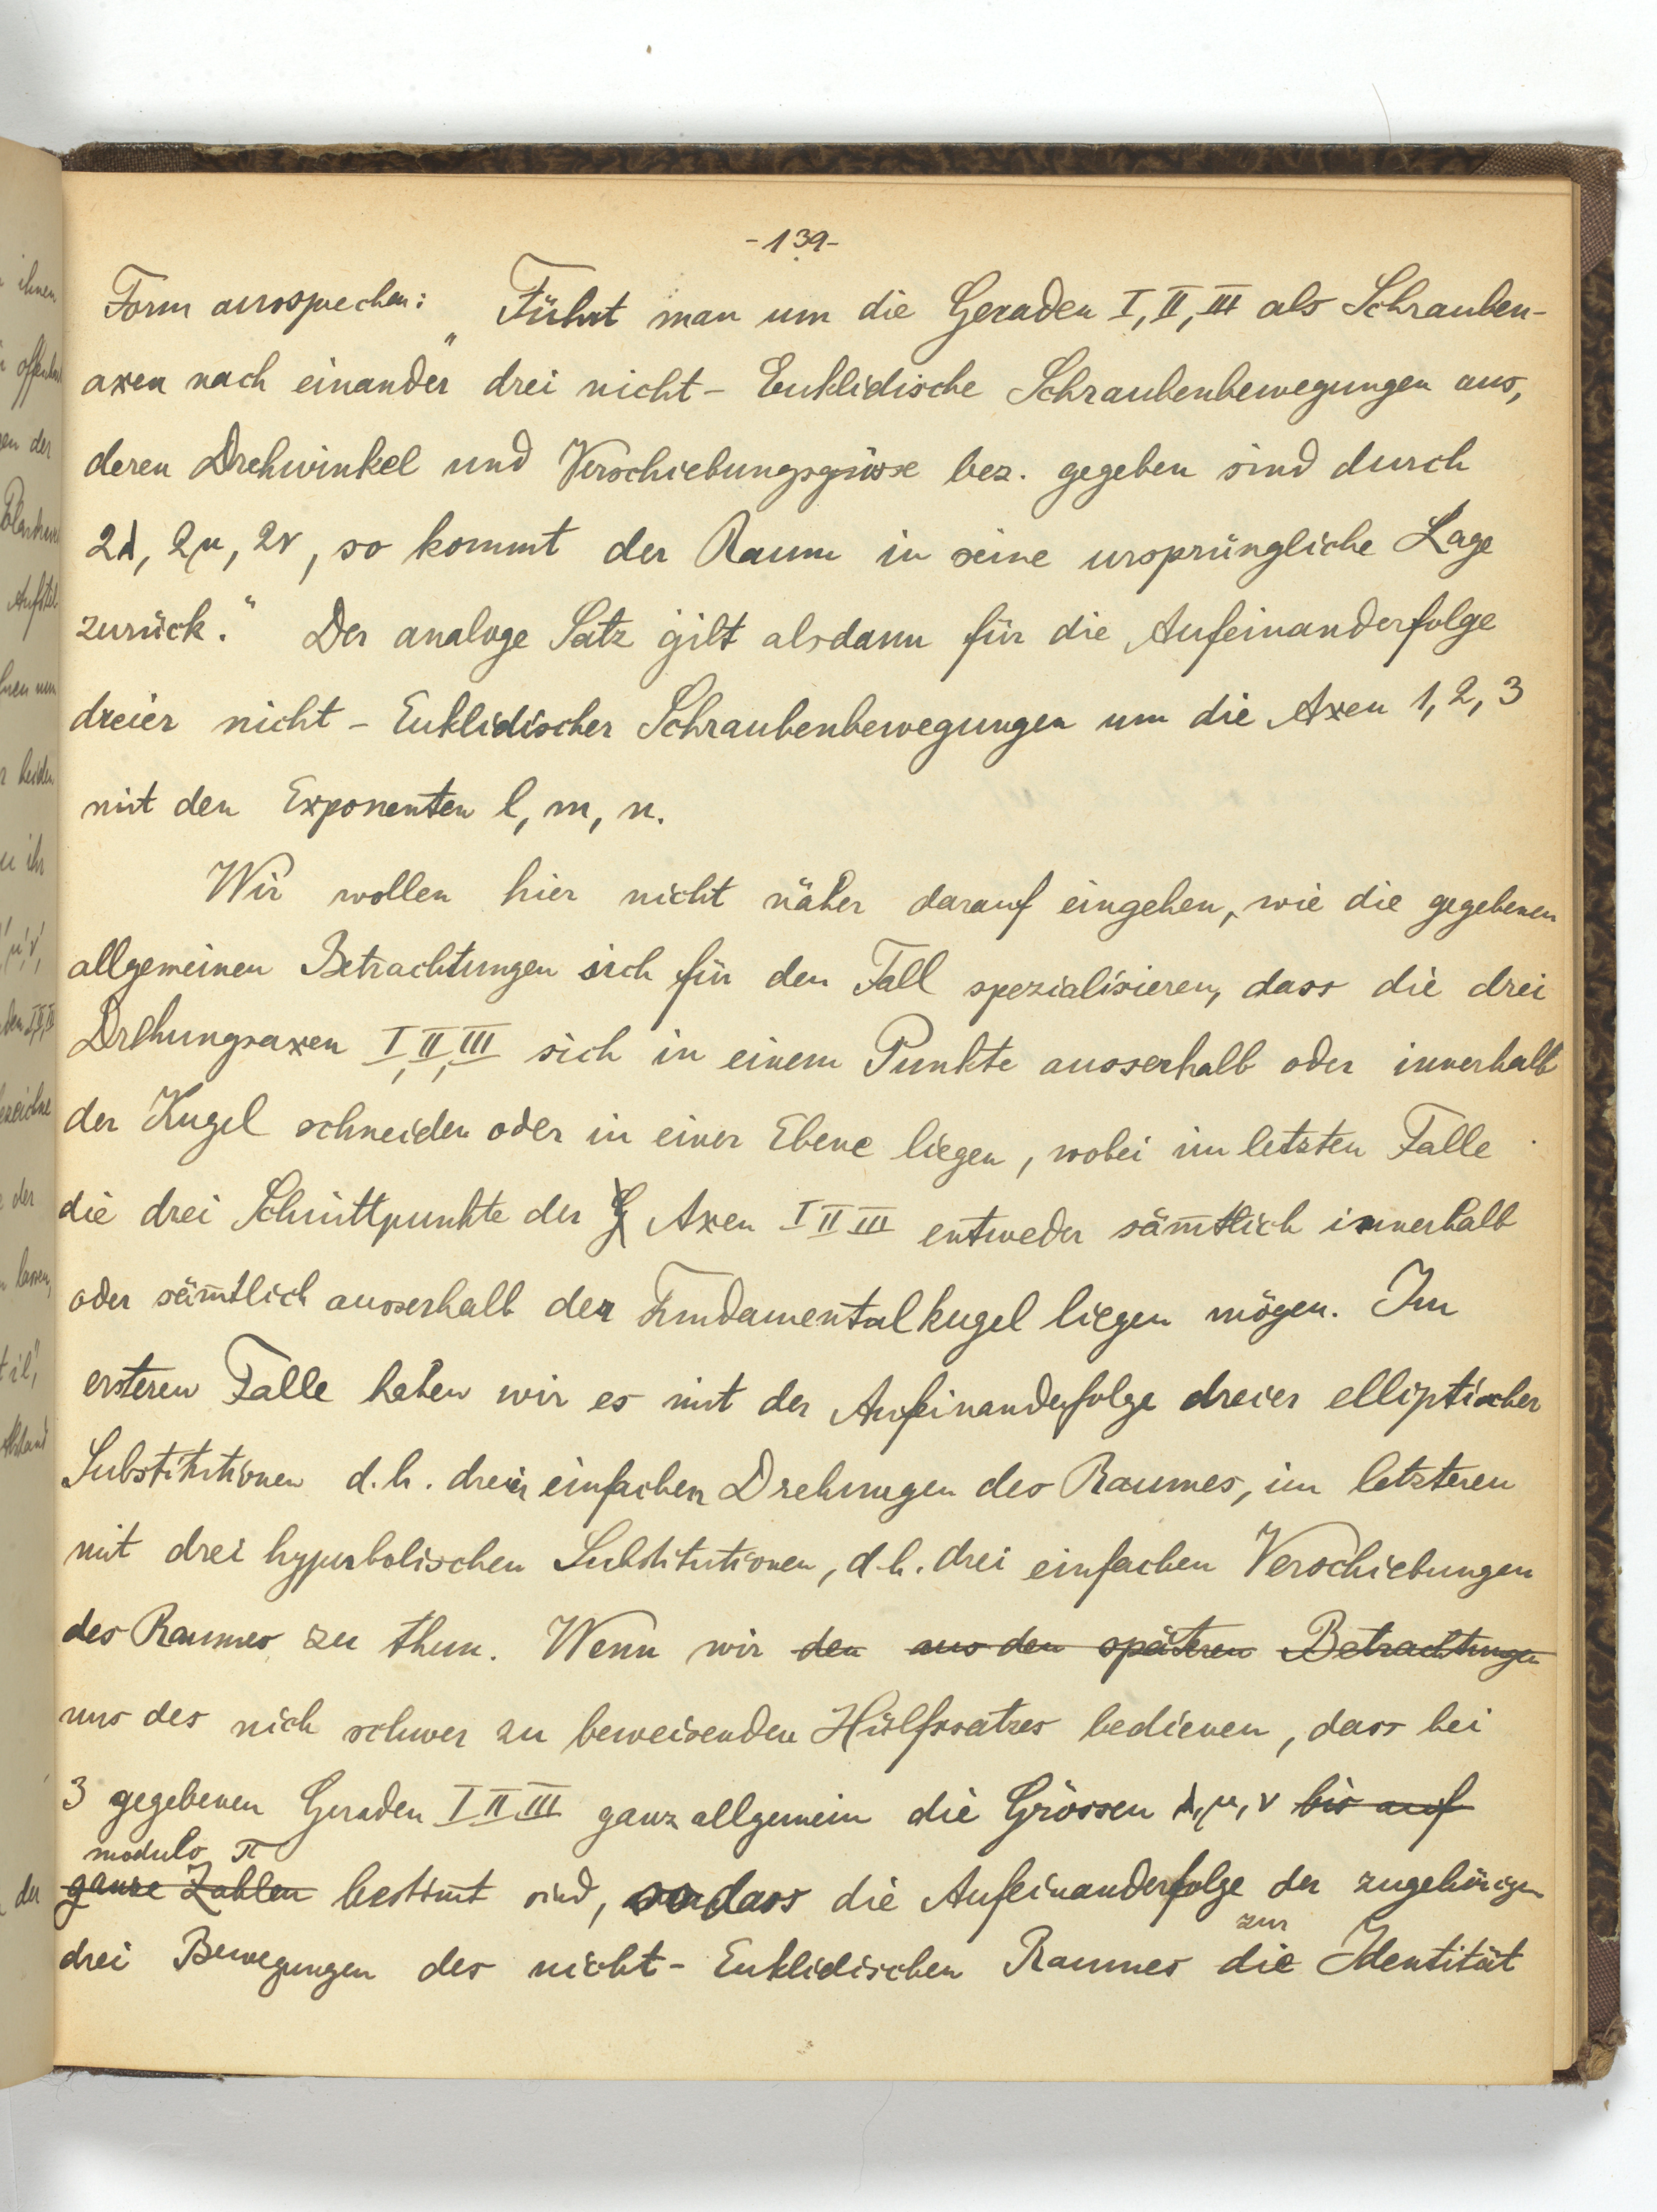 -139-
Form aussprechen: „Führt man um die Geraden I, II, III als Schrauben-
axen nach einander drei nicht-Euklidische Schraubenbewegungen aus,
deren Drehwinkel und Verschiebungsgrösse bez. gegeben sind durch
2λ, 2μ, 2ν, so kommt der Raum in seine ursprüngliche Lage
zurück.“ Der analoge Satz gilt alsdann für die Aufeinanderfolge
dreier nicht-Euklidischer Schraubenbewegungen um die Axen 1, 2, 3
mit den Exponenten l, m, n.
Wir wollen hier nicht näher darauf eingehen, wie die gegebenen
allgemeinen Betrachtungen sich für den Fall spezialisieren, dass die drei
Drehungsaxen I, II, III sich in einem Punkte ausserhalb oder innerhalb
der Kugel schneiden oder in einer Ebene liegen, wobei im letzten Falle
die drei Schnittpunkte der Axen I II III entweder säm̅tlich innerhalb
oder säm̅tlich ausserhalb der Fundamentalkugel liegen mögen. Im
ersteren Falle haben wir es mit der Aufeinanderfolge dreier elliptischer
Substitutionen d.h. dreier einfachen Drehungen des Raumes, im letzteren
mit drei hyperbolischen Substitutionen, d.h. drei einfachen Verschiebungen
des Raumes zu thun. Wenn wir den aus den späteren Betrachtungen
uns des nich schwer zu beweisenden Hülfssatzes bedienen, dass bei
3 gegebenen Geraden I II III ganz allgemein die Grössen λ, μ, ν bis auf
modulo π
ganze Zahlen bestim̅t sind, sodass die Aufeinanderfolge der zugehörigen
zur
drei Bewegungen des nicht-Euklidischen Raumes die Identität